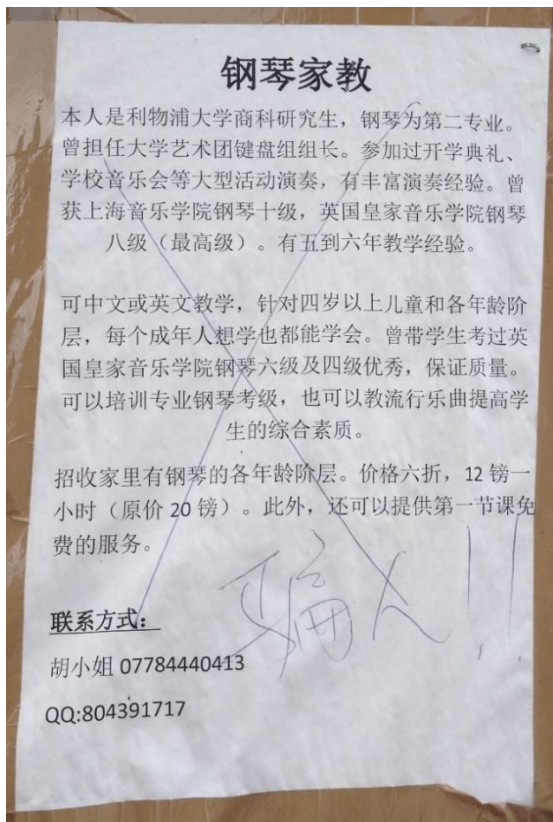 钢琴家教
本人是利物浦大学商科研究生，钢琴为第二专业。
曾担任大学艺术团键盘组组长。参加过开学典礼、
学校音乐会等大型活动演奏，有丰富演奏经验。曾
获上海音乐学院钢琴十级，英国皇家音乐学院钢琴
八级（最高级）。有五到六年教学经验。
可中文或英文教学，针对四岁以上儿童和各年龄阶
层，每个成年人想学也都能学会。曾带学生考过英
国皇家音乐学院钢琴六级及四级优秀，保证质量。
可以培训专业钢琴考级，也可以教流行乐曲提高学
生的综合素质。
招收家里有钢琴的各年龄阶层。价格六折，12 镑一
小时（原价 20 镑）。此外，还可以提供第一节课免
费的服务。
骗人!!
联系方式：
胡小姐 07784440413
QQ:804391717